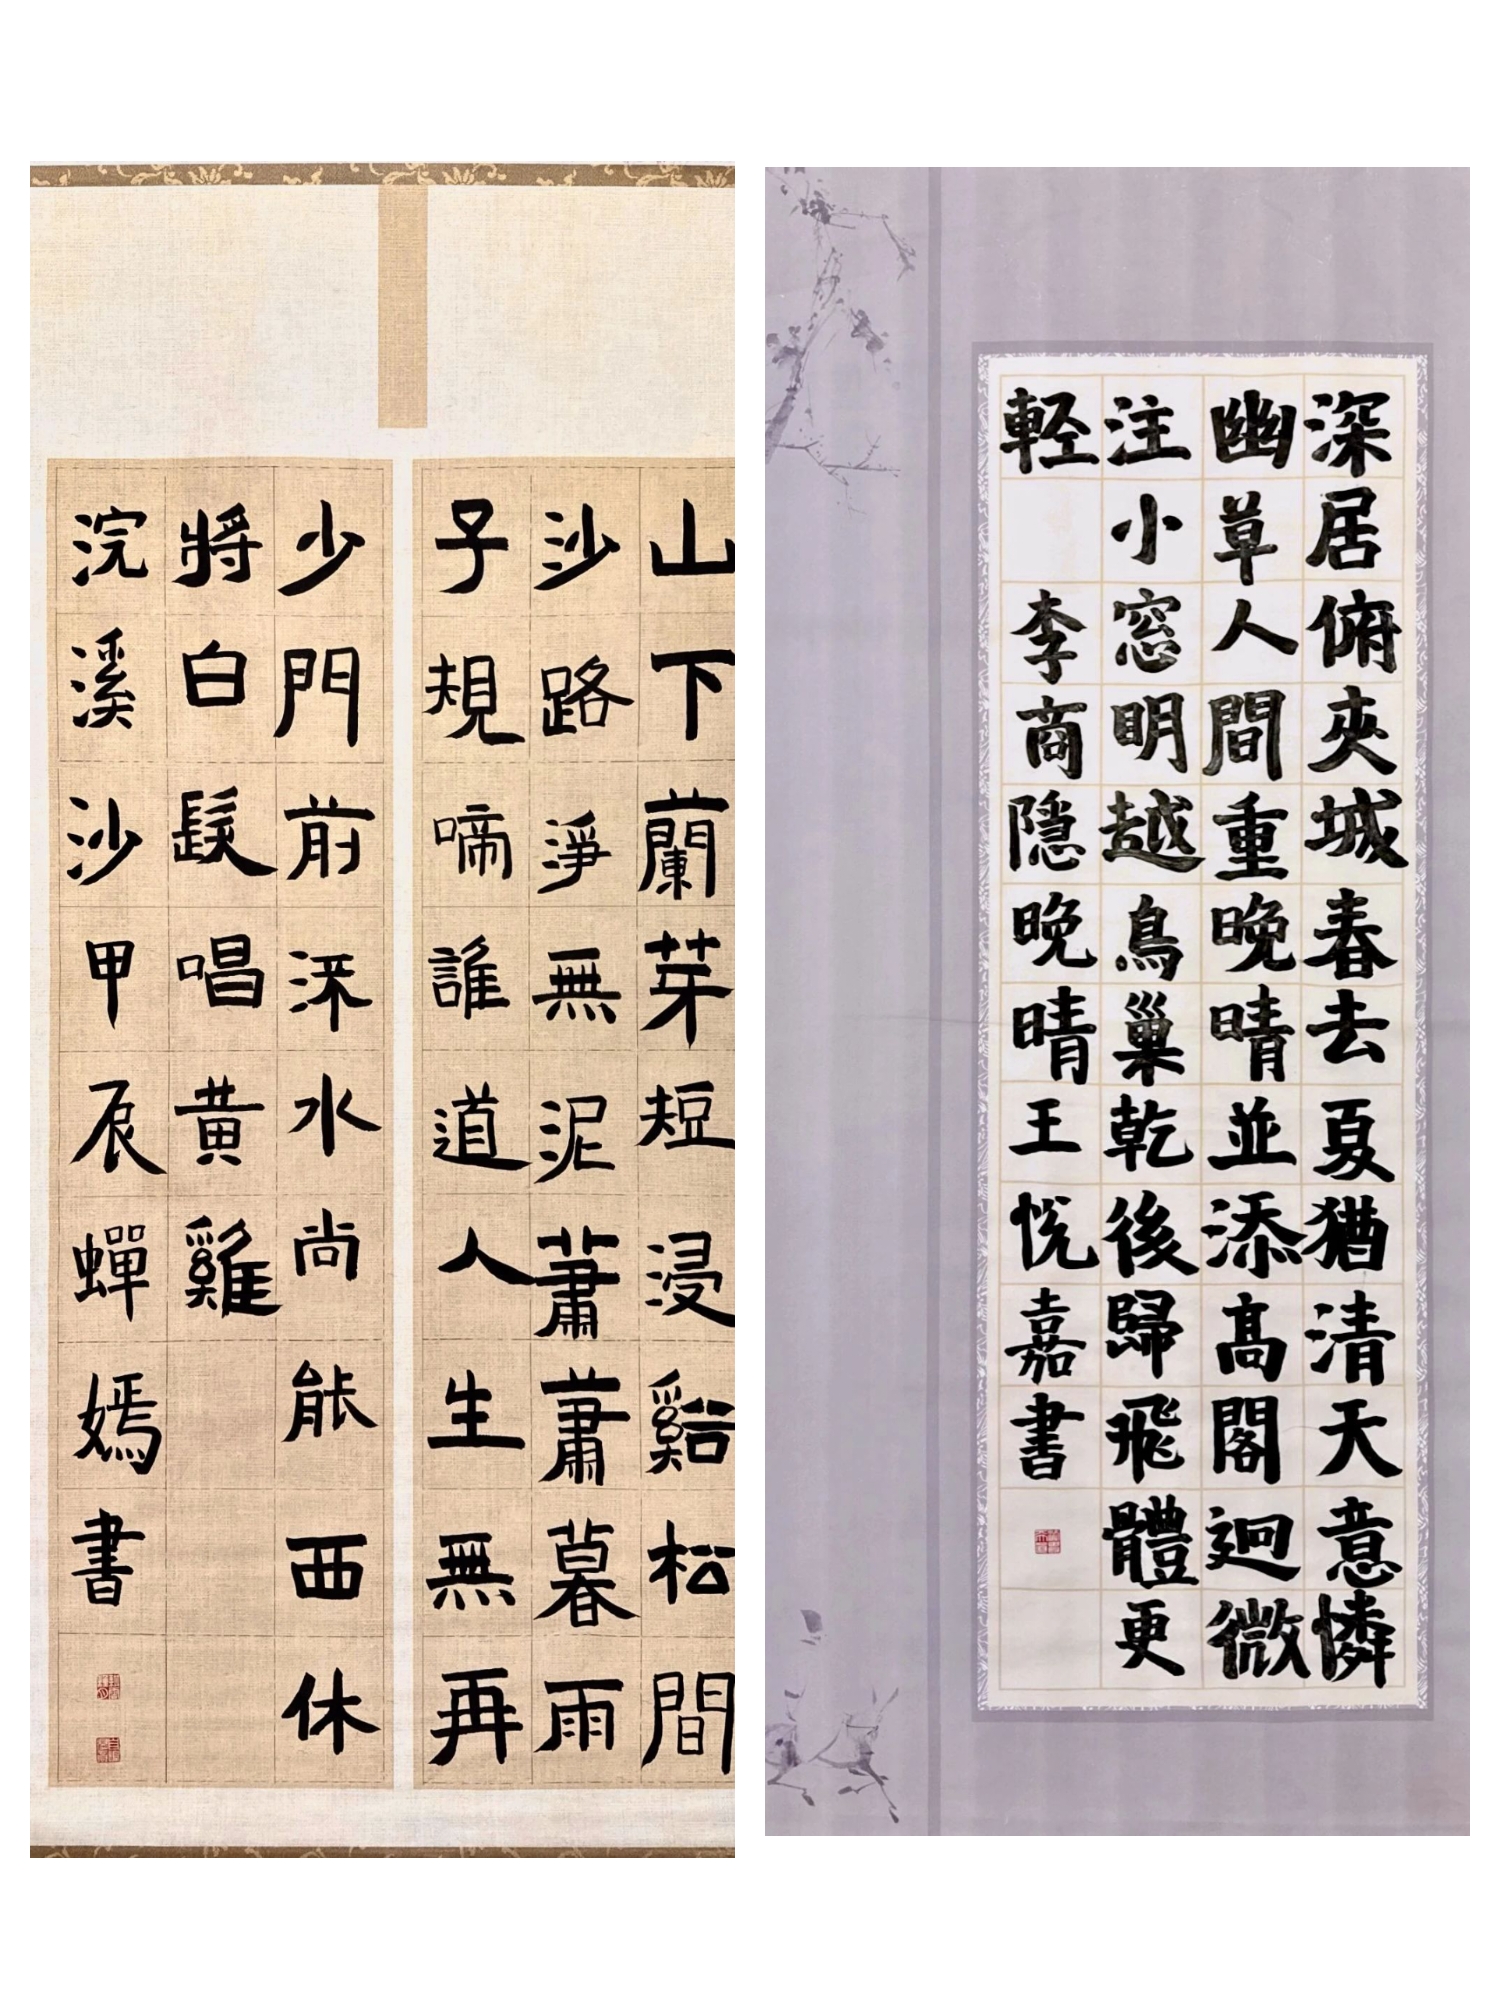 山下蘭芽短浸谿松間
沙路淨無泥蕭蕭暮雨
子規啼誰道人生無再
少門前流水尚能西休
將白髮唱黃雞
浣溪沙甲辰蟬嫣書
深居俯夾城春去夏猶清天意憐
幽草人間重晚晴並添高閣迥微
注小窓明越鳥巢乾後歸飛體更
輕 李商隱晚晴王悅嘉書